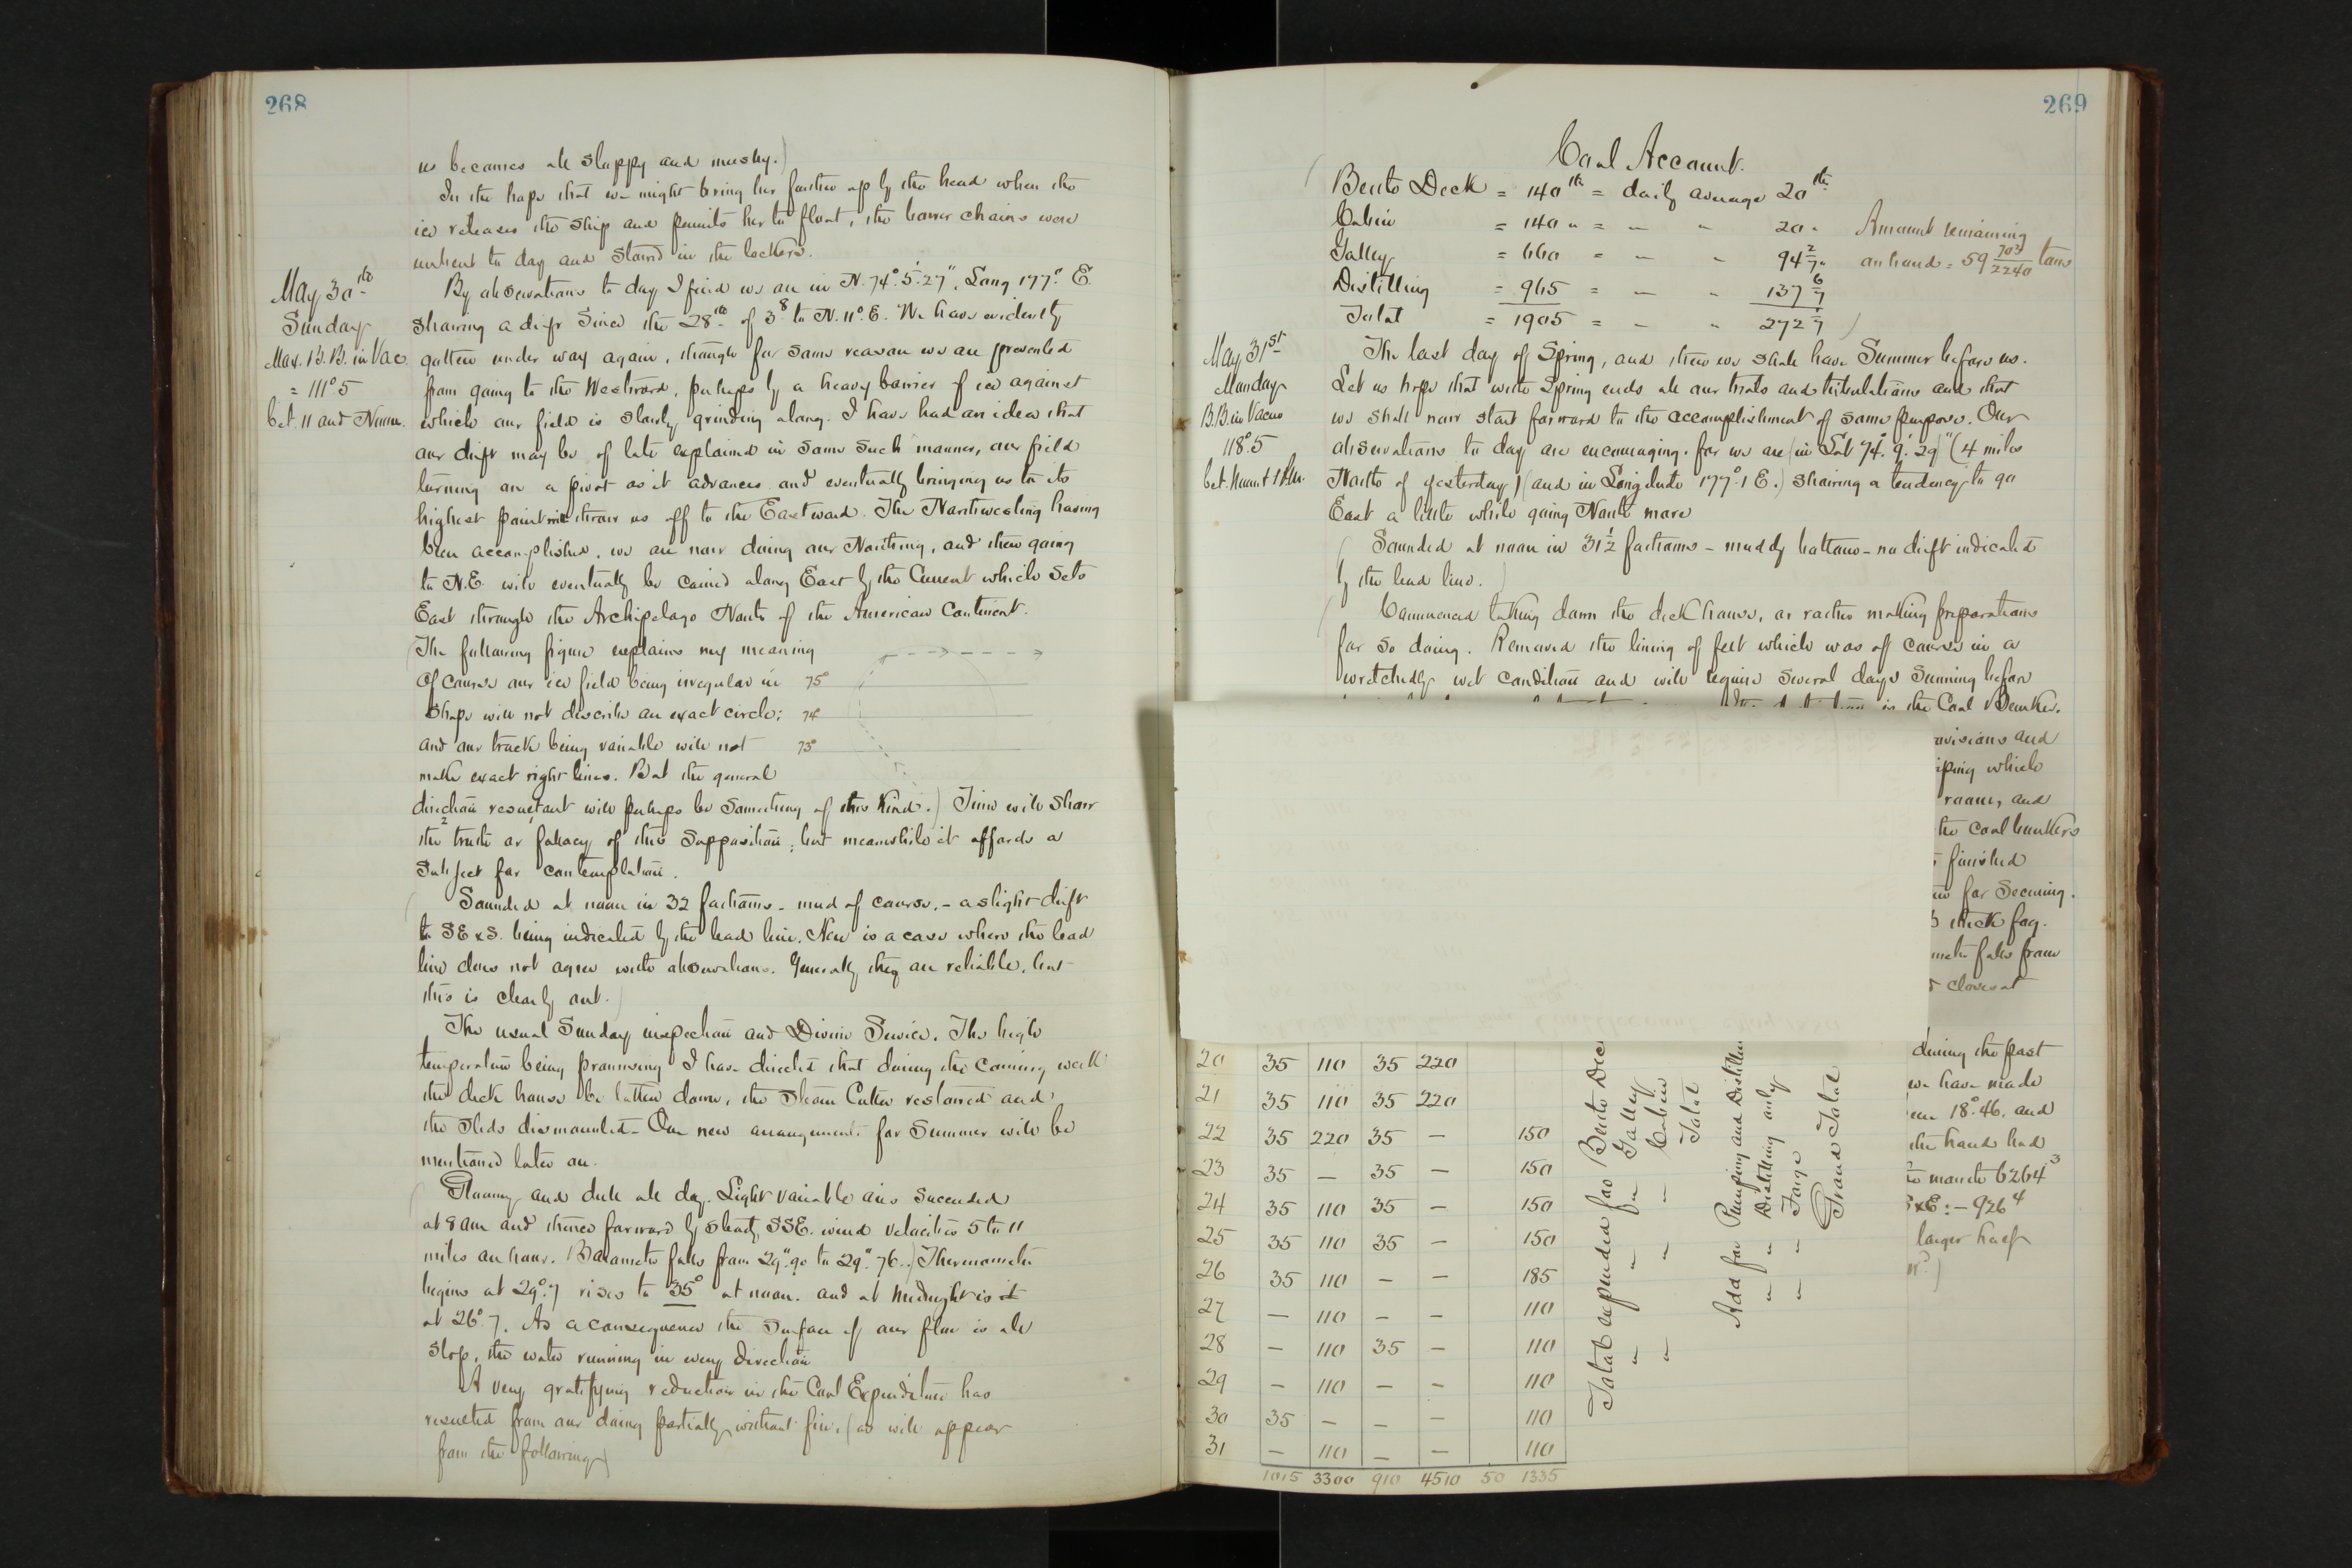 268
us becomes all sloppy and mushy.)
In the hope that we might bring her farther up by the head when the
ice releases the ship and permits her to float, the bower chains were
unbent to day and stowed in the lockers.
May 30th
Sunday
Max. B.B. in Vac.
= 111°5
bet. 11 and Noon.
By observations to day I find we are in N. 74°.5'.27", Long 177° E.
showing a drift since the 28th of 3⁸ to N.11°.E. We have evidently
gotten under way again, though for some reason we are prevented
from going to the Westward, perhaps by a heavy barrier of ice against
which our field is slowly grinding along. I have had an idea that
our drift may be of late explained in some such manner, our field
turning on a pivot as it advances and eventually bringing us to its
highest point throw us off to the Eastward. The Northwesting having
been accomplished, we are now doing our Northing, and then going
to N.E. will eventually be carried along East by the Current which sets
East through the Archipelago North of the American Continent.
(The following figure explains my meaning
Of course our ice field being irregular in 75°
shape will not describe an exact circle; 74°
and our track being variable will not 73°
make exact right lines. But the general
direction resultant will perhaps be something of this kind.) Time will show
the truth or fallacy of this supposition; but meanwhile it affords a
subject for contemplation.
(Sounded at noon in 32 fathoms - mud of course. - a slight drift
to SExS. being indicated by the lead line. Here is a case where the lead
line does not agree with observations. Generally they are reliable, but
this is clearly out.)
The usual Sunday inspection and Divine Service. The high
temperature being promising I have directed that during the coming week
the deck house be taken down, the Steam Cutter restowed and
the sleds dismounted. Our new arrangements for Summer will be
mentioned later on.
(Gloomy and dull all day. Light variable airs succeeded
at 8 am and thence forward by steady SSE. wind velocities 5 to 11
miles an hour. Barometer falls from 29".90 to 29".76.) Thermometer
begins at 29°.7 rises to 35° at noon. and at midnight is
at 26°.7. As a consequence the surface of our floe is all
slop, the water running in every direction
A very gratifying reduction in the Coal Expenditure has
resulted from our doing partially without fire, (as will appear
from the following)
269
Coal Account.
(Berth Deck = 140 lb = daily average 20 lb
Cabin = 140 " = — " 20 "
Galley = 660 = — " 94 2/7 "
Distilling = 965 = — " 137 6/7
Total = 1905 = — " 272 1/7 )
Amount remaining
on hand = 59 703/2240 tons
May 31st
Monday
B.B. in Vacuo
118°.5
bet. Noon & 1 P.M.
The last day of Spring, and then we shall have Summer before us.
Let us hope that with Spring ends all our trials and tribulations and that
we shall now start forward to the accomplishment of some purpose. Our
observations to day are encouraging. for we are (in Lat 74°. 9'. 29") (4 miles
North of yesterday) (and in Longitude 177°.1 E.) showing a tendency to go
East a little while going North more
(Sounded at noon in 31½ fathoms - muddy bottom - no drift indicated
by the lead line.)
(Commenced taking down the deck house, or rather making preparations
for so doing. Removed the lining of felt which was of course in a
wretchedly wet condition and will require several days sunning before
is the Coal Bunker.
and
which
room, and
the coal bunkers
finished
for securing.
thick fog.
falls from
closes at
during the past
we have made
18°.46. and
the hand had
6264³
926⁴
larger half
20 35 110 35 220
21 35 110 35 220
22 35 220 35 — 150
23 35 — 35 — 150
24 35 110 35 — 150
25 35 110 35 — 150
26 35 110 — — 185
27 — 110 — — 110
28 — 110 35 — 110
29 — 110 — — 110
30 35 — — — 110
31 — 110 — — 110
1015 3300 910 4510 50 1335
Total expended for Berth Dec
" " for Galley
" " — Cabin
Total
Add for Pumping and Distilling
" " Distilling only
" " Forge
Grand Total